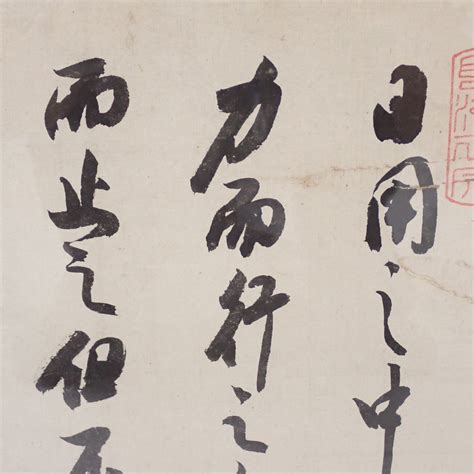 日用之中
力而行之
而止之但不